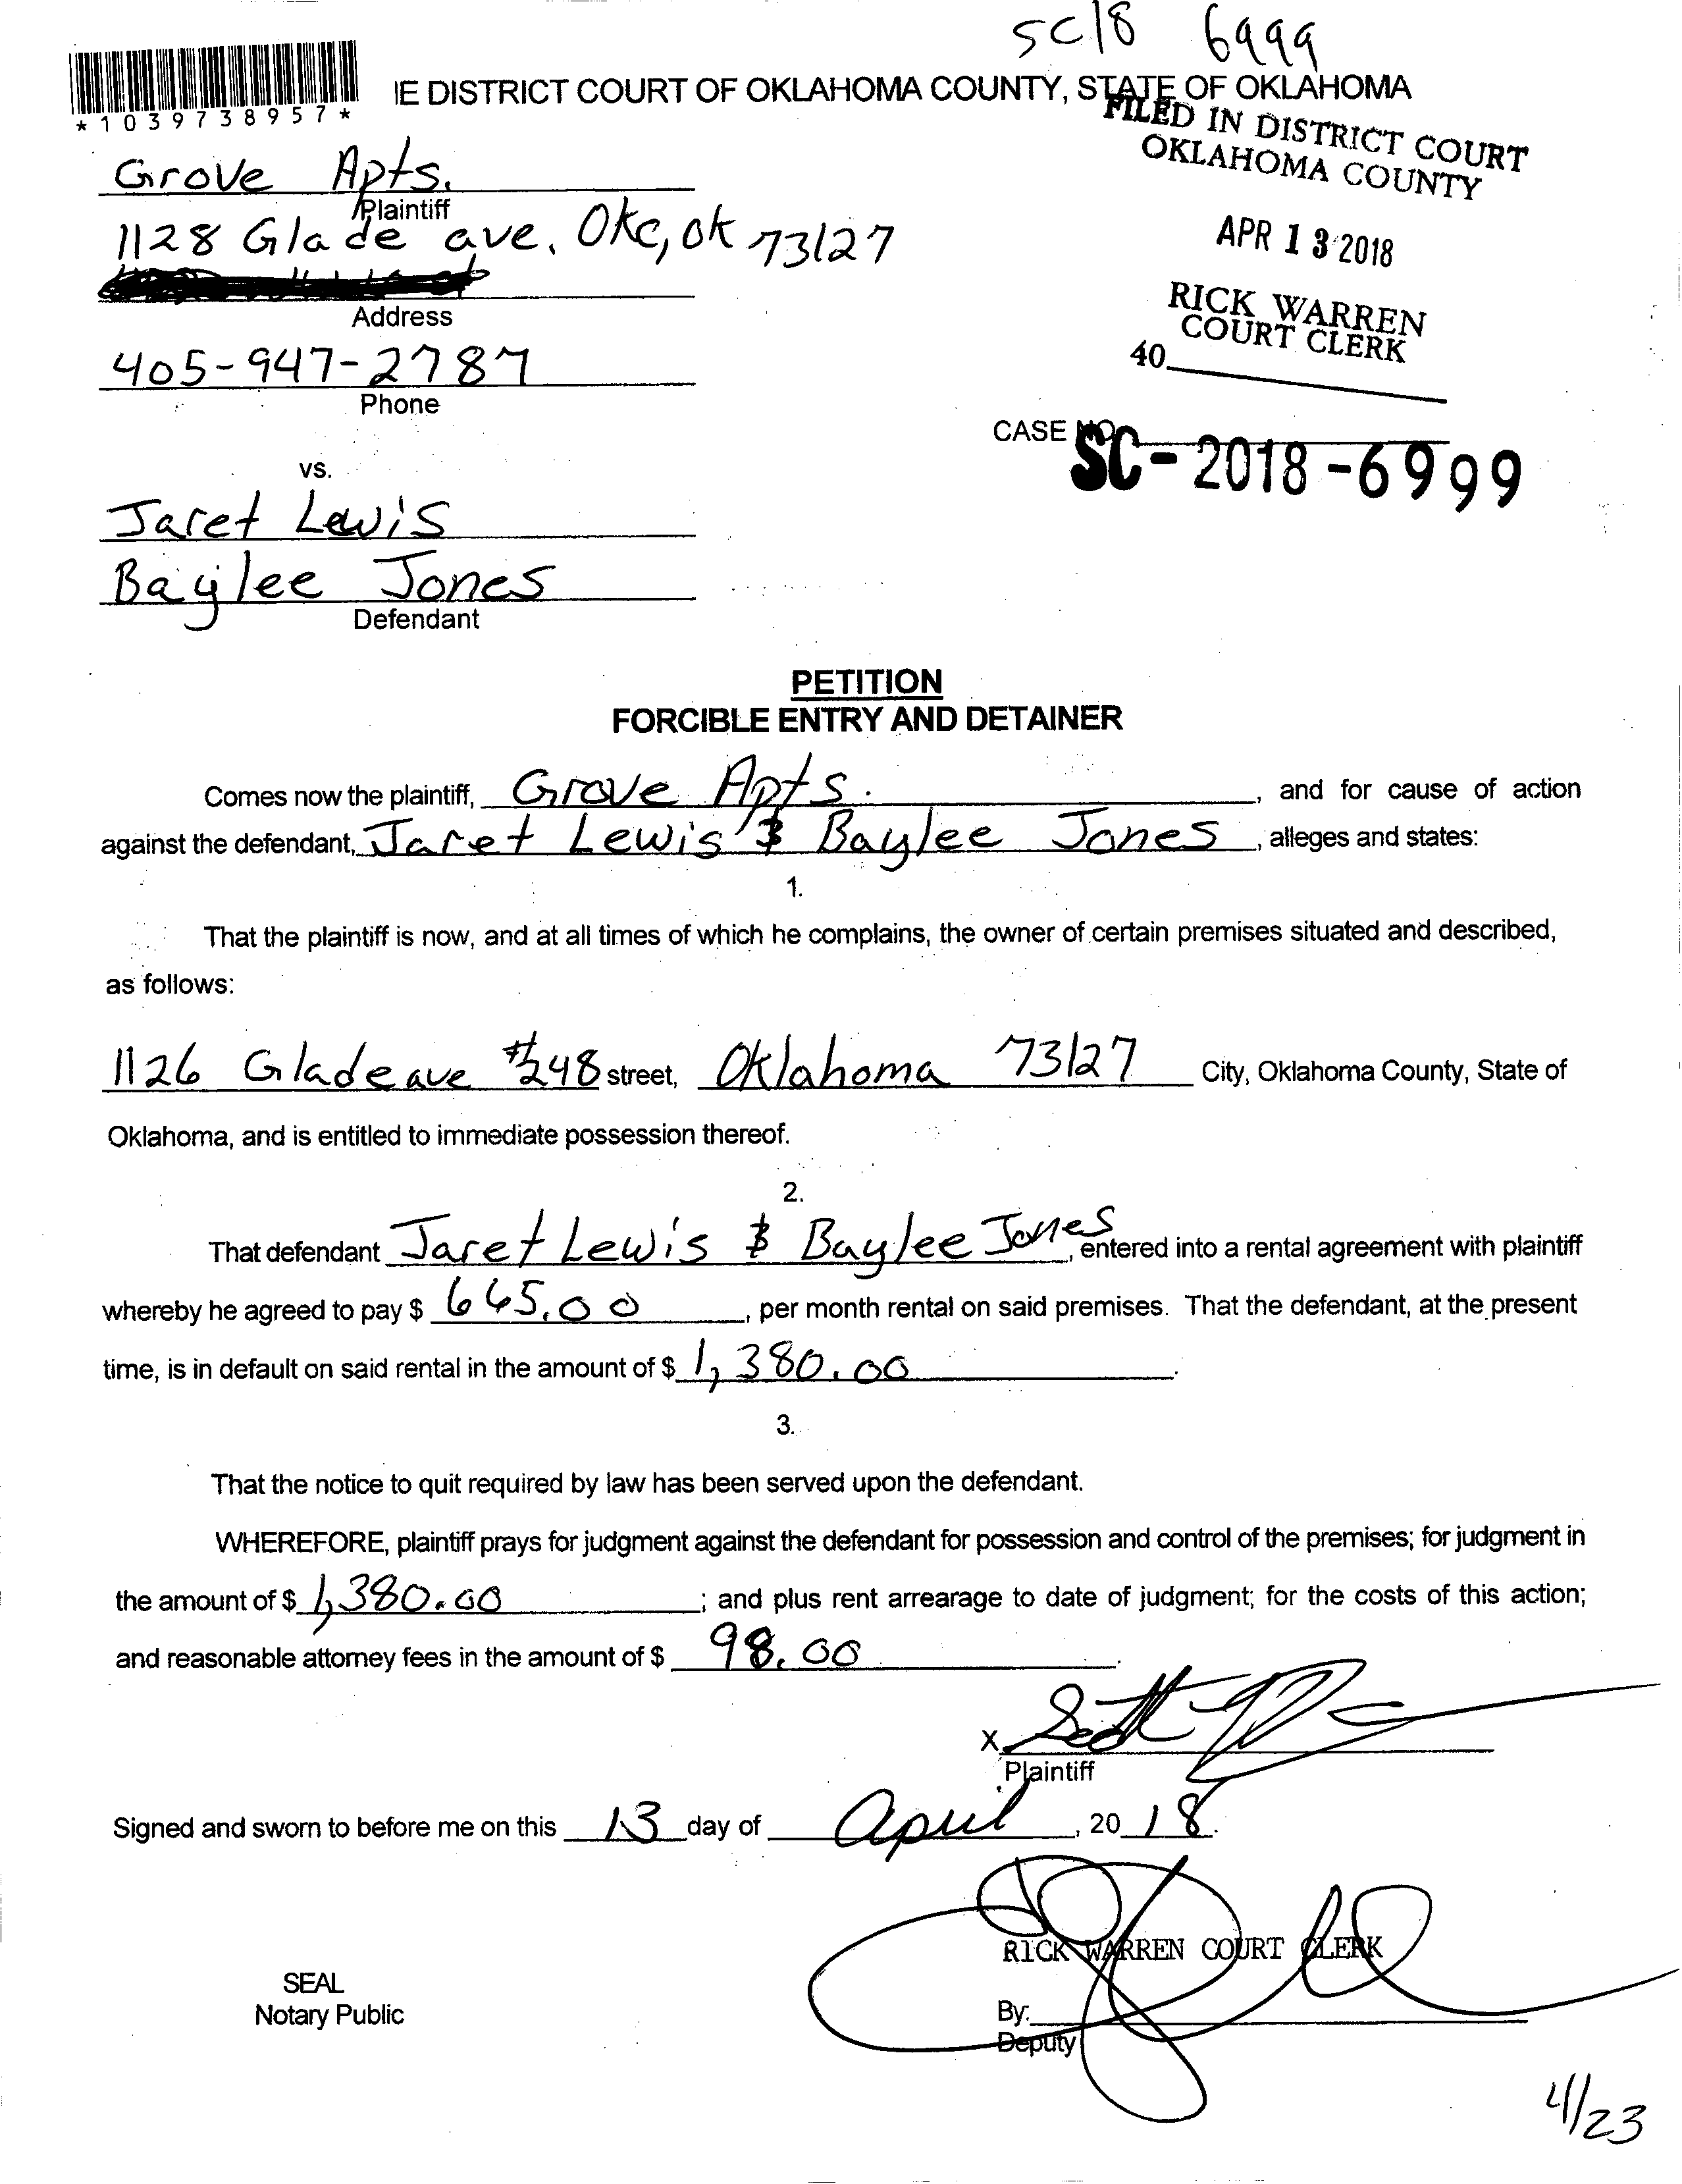 SC18 6999
IE DISTRICT COURT OF OKLAHOMA COUNTY, STATE OF OKLAHOMA
*1039738957*
FILED IN DISTRICT COURT
OKLAHOMA COUNTY
Grove Apts.
Plaintiff
1128 Glade ave. Okc, ok 73127
APR 13 2018
Address
RICK WARREN
COURT CLERK
40
405-947-2787
Phone
CASE NO.
SC-2018-6999
vs.
Jaret Lewis
Baylee Jones
Defendant
PETITION
FORCIBLE ENTRY AND DETAINER
Comes now the plaintiff, Grove Apts. , and for cause of action
against the defendant, Jaret Lewis & Baylee Jones , alleges and states:
1.
That the plaintiff is now, and at all times of which he complains, the owner of certain premises situated and described,
as follows:
1126 Glade ave #248 street, Oklahoma 73127 City, Oklahoma County, State of
Oklahoma, and is entitled to immediate possession thereof.
2.
That defendant Jaret Lewis & Baylee Jones, entered into a rental agreement with plaintiff
whereby he agreed to pay $ 645.00 , per month rental on said premises. That the defendant, at the present
time, is in default on said rental in the amount of $ 1,380.00 .
3.
That the notice to quit required by law has been served upon the defendant.
WHEREFORE, plaintiff prays for judgment against the defendant for possession and control of the premises; for judgment in
the amount of $ 1,380.00 ; and plus rent arrearage to date of judgment; for the costs of this action;
and reasonable attorney fees in the amount of $ 98.00 .
X Scott
Plaintiff
Signed and sworn to before me on this 13 day of April , 20 18.
RICK WARREN COURT CLERK
SEAL
Notary Public
By:
Deputy
4/23